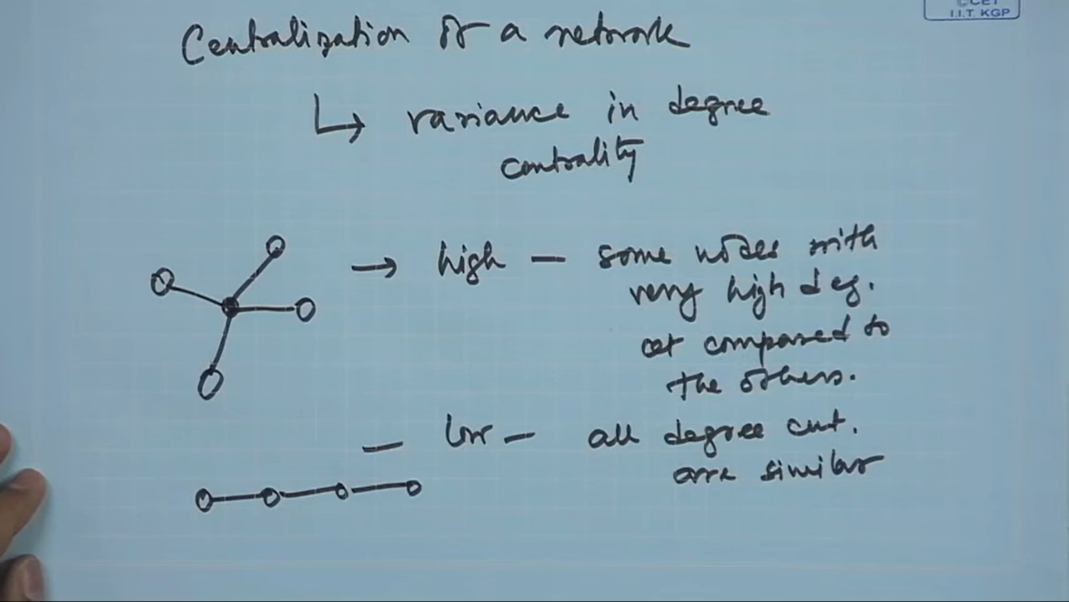 ©CET
I.I.T. KGP
Centralization of a network
variance in degree
centrality
high - some nodes with
very high deg.
cet compared to
the others.
- low - all degree cnt.
are similar